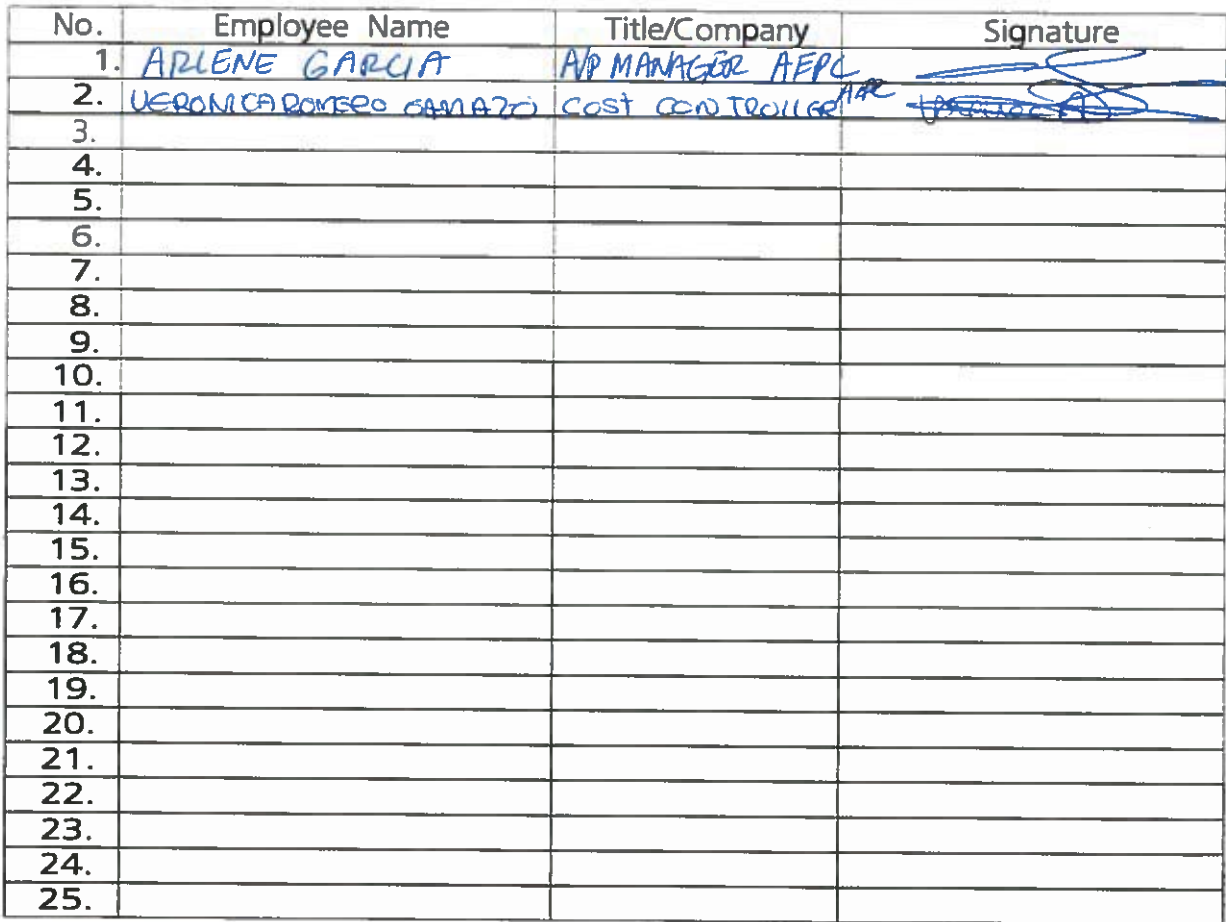 No. Employee Name Title/Company Signature
1. ARLENE GARCIA A/P MANAGER AEPC
2. VERONICA ROMERO GAMAZO COST CONTROLLER
3.
4.
5.
6.
7.
8.
9.
10.
11.
12.
13.
14.
15.
16.
17.
18.
19.
20.
21.
22.
23.
24.
25.